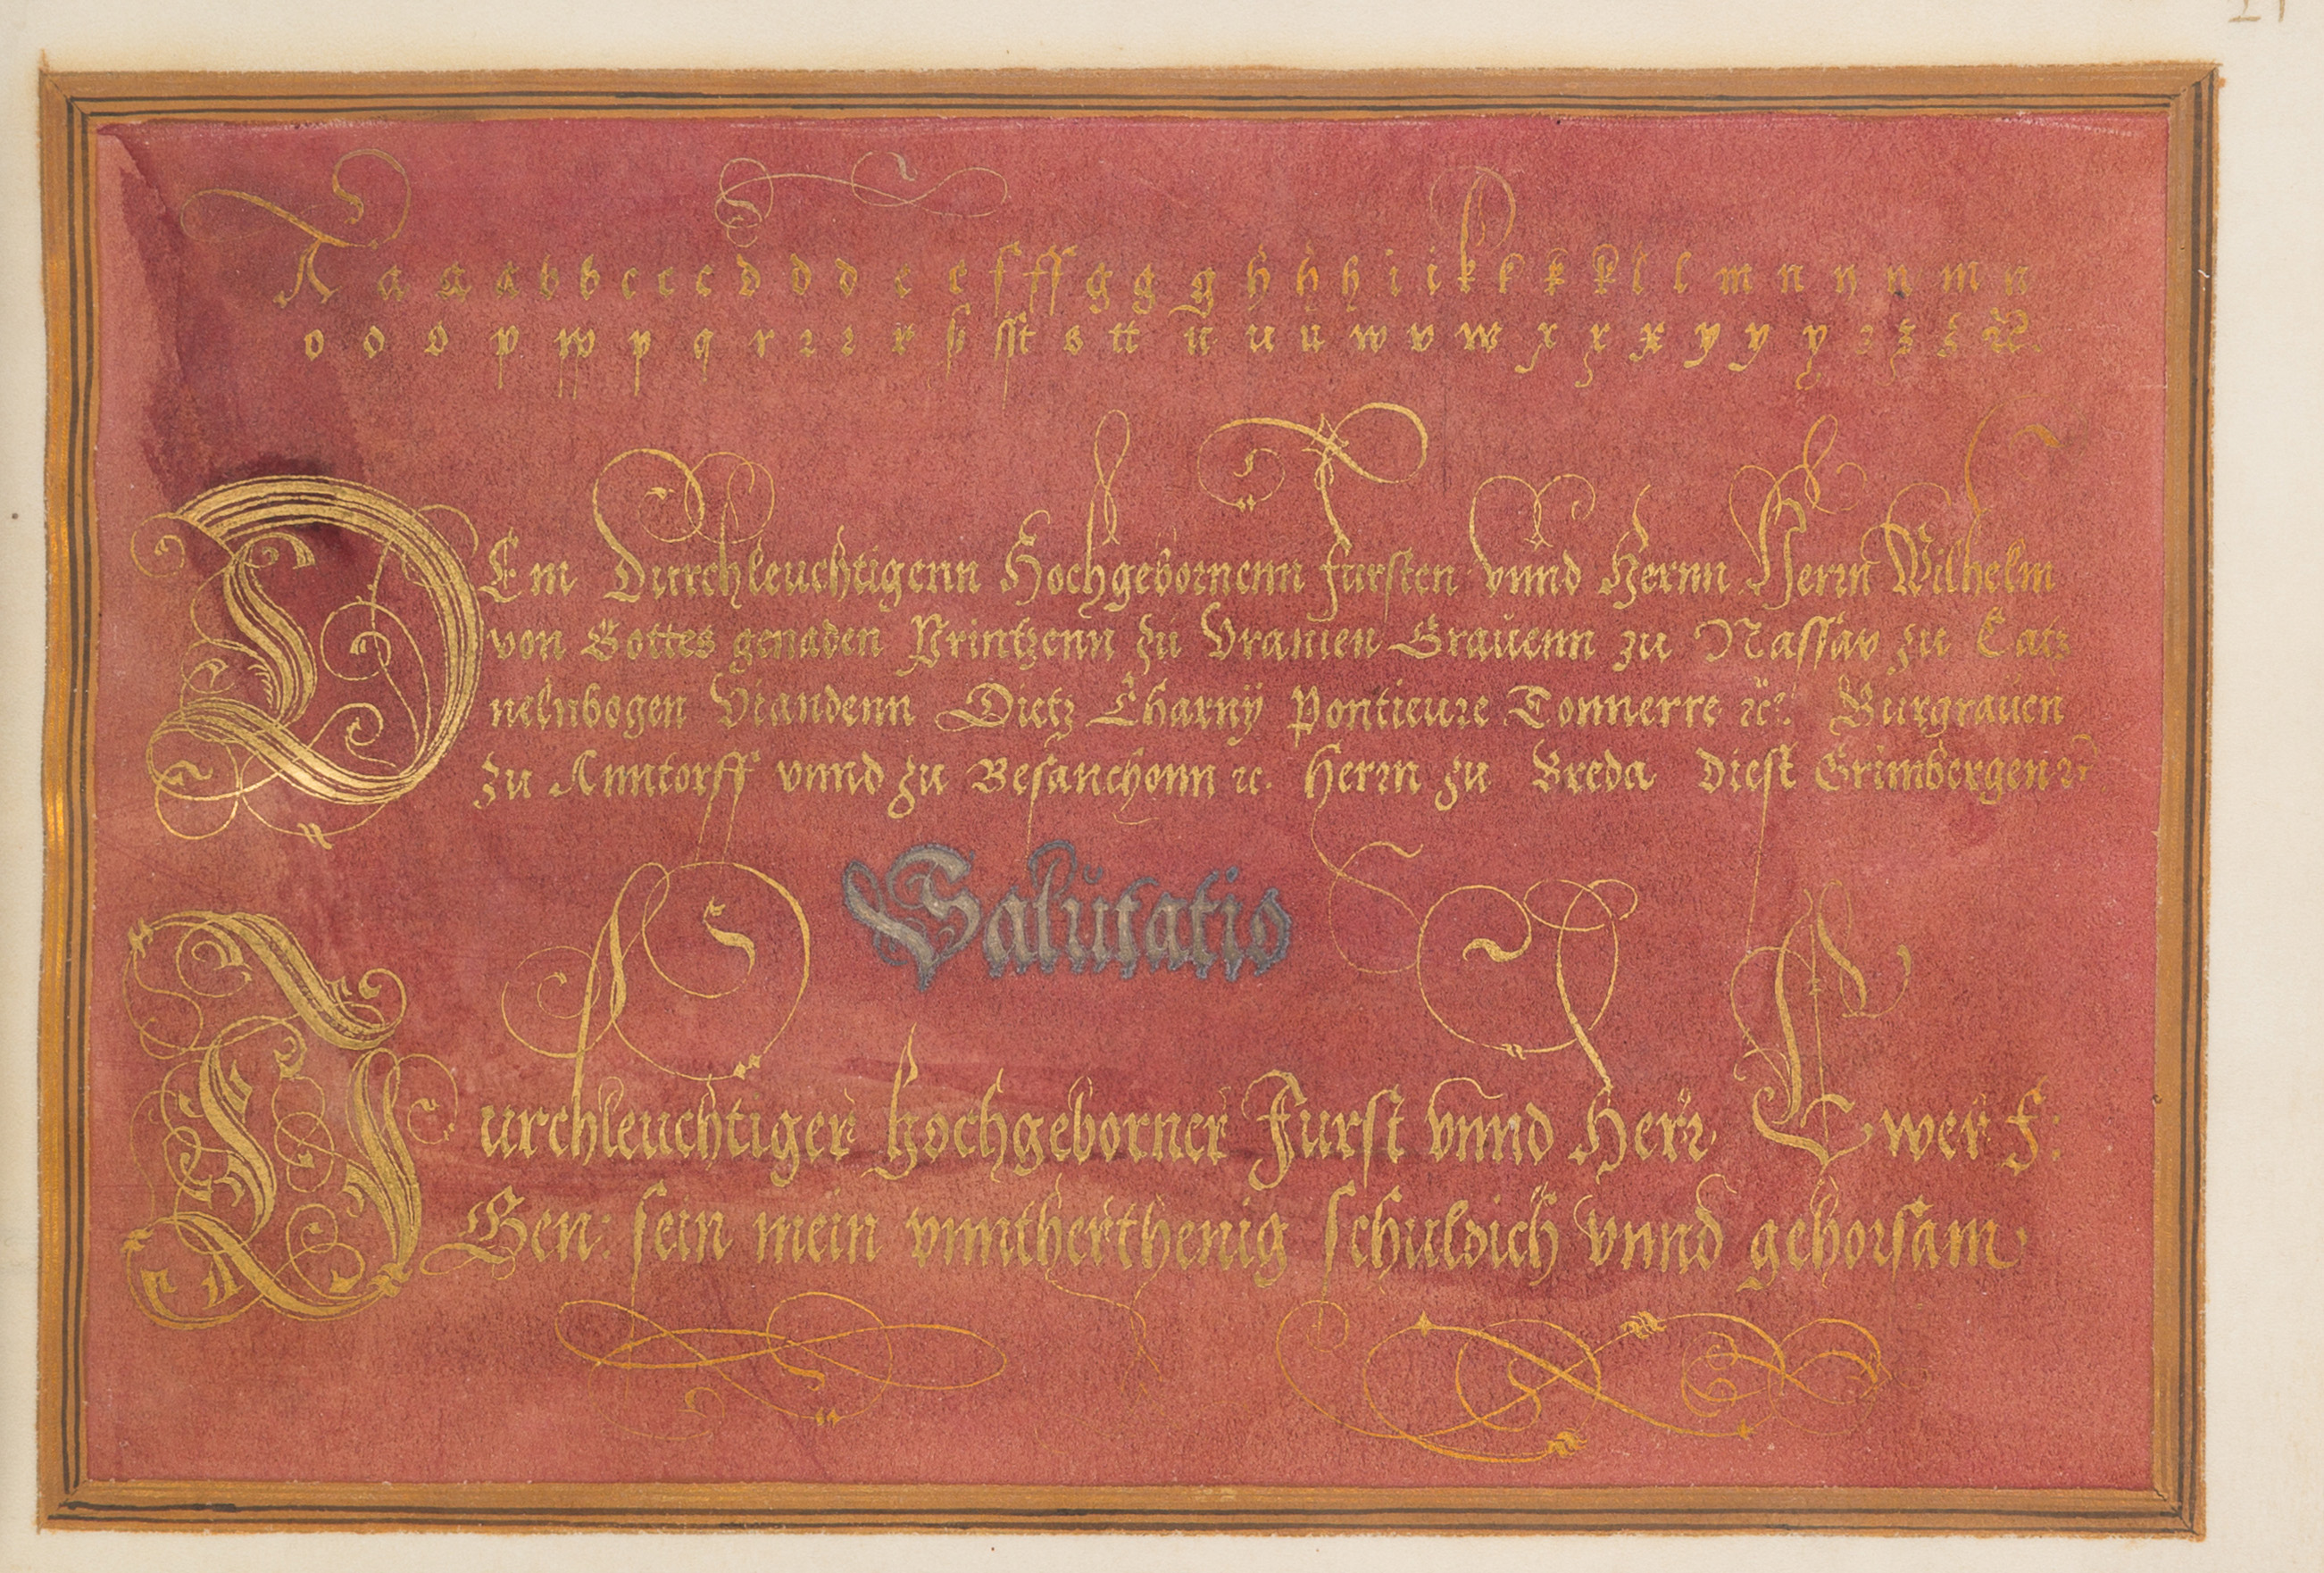 A a a a b b c c c d d d e e f ff g g g h h h i i k k k k l l m n n n m n
o o o p pp p q r r r r ß sst s tt u u u w v w x x x y y y z z z ꝛc.
DEm Durchleuchtigenn Hochgebornenn fursten vnnd Hernn Herrn Wilhelm
von Gottes genaden Printzenn zu Vranien Grauenn zu Nassav zu Catz
nelnbogen Viandenn Dietz Charny Pontieure Tonnerre ꝛc. Burgrauen
zu Anntorff vnnd zu Besanchonn ꝛc. Herrn zu Breda Diest Grimbergen ꝛc
Salutatio
Durchleuchtiger hochgeborner Furst vnnd Herr Ewer F:
Gen: sein mein vnntherthenig schuldich vnnd gehorsam